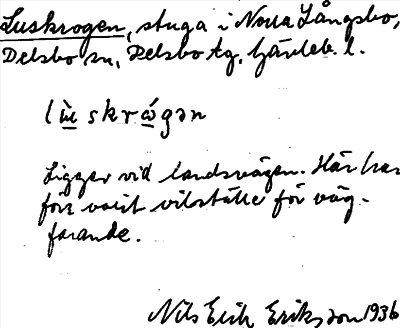 Luskrogen, stuga i Norra Långsbo,
Delsbo sn, Delsbo tg, Gävleb. l.
lùskrǻgən
Ligger vid landsvägen. Här har
förr varit viloställe för väg-
farande.
Nils Erik Eriksson 1936